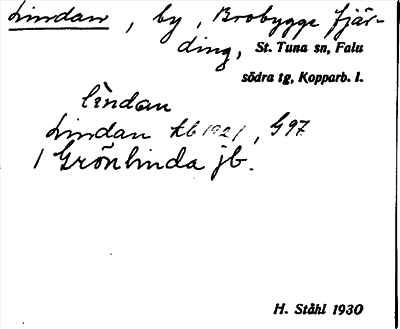 Lindan, by, Brobygge fjär-
ding, St. Tuna sn, Falu
södra tg, Kopparb. l.
lìndan
Lindan kb 1921, G97
/ Grönlinda jb.
H. Ståhl 1930